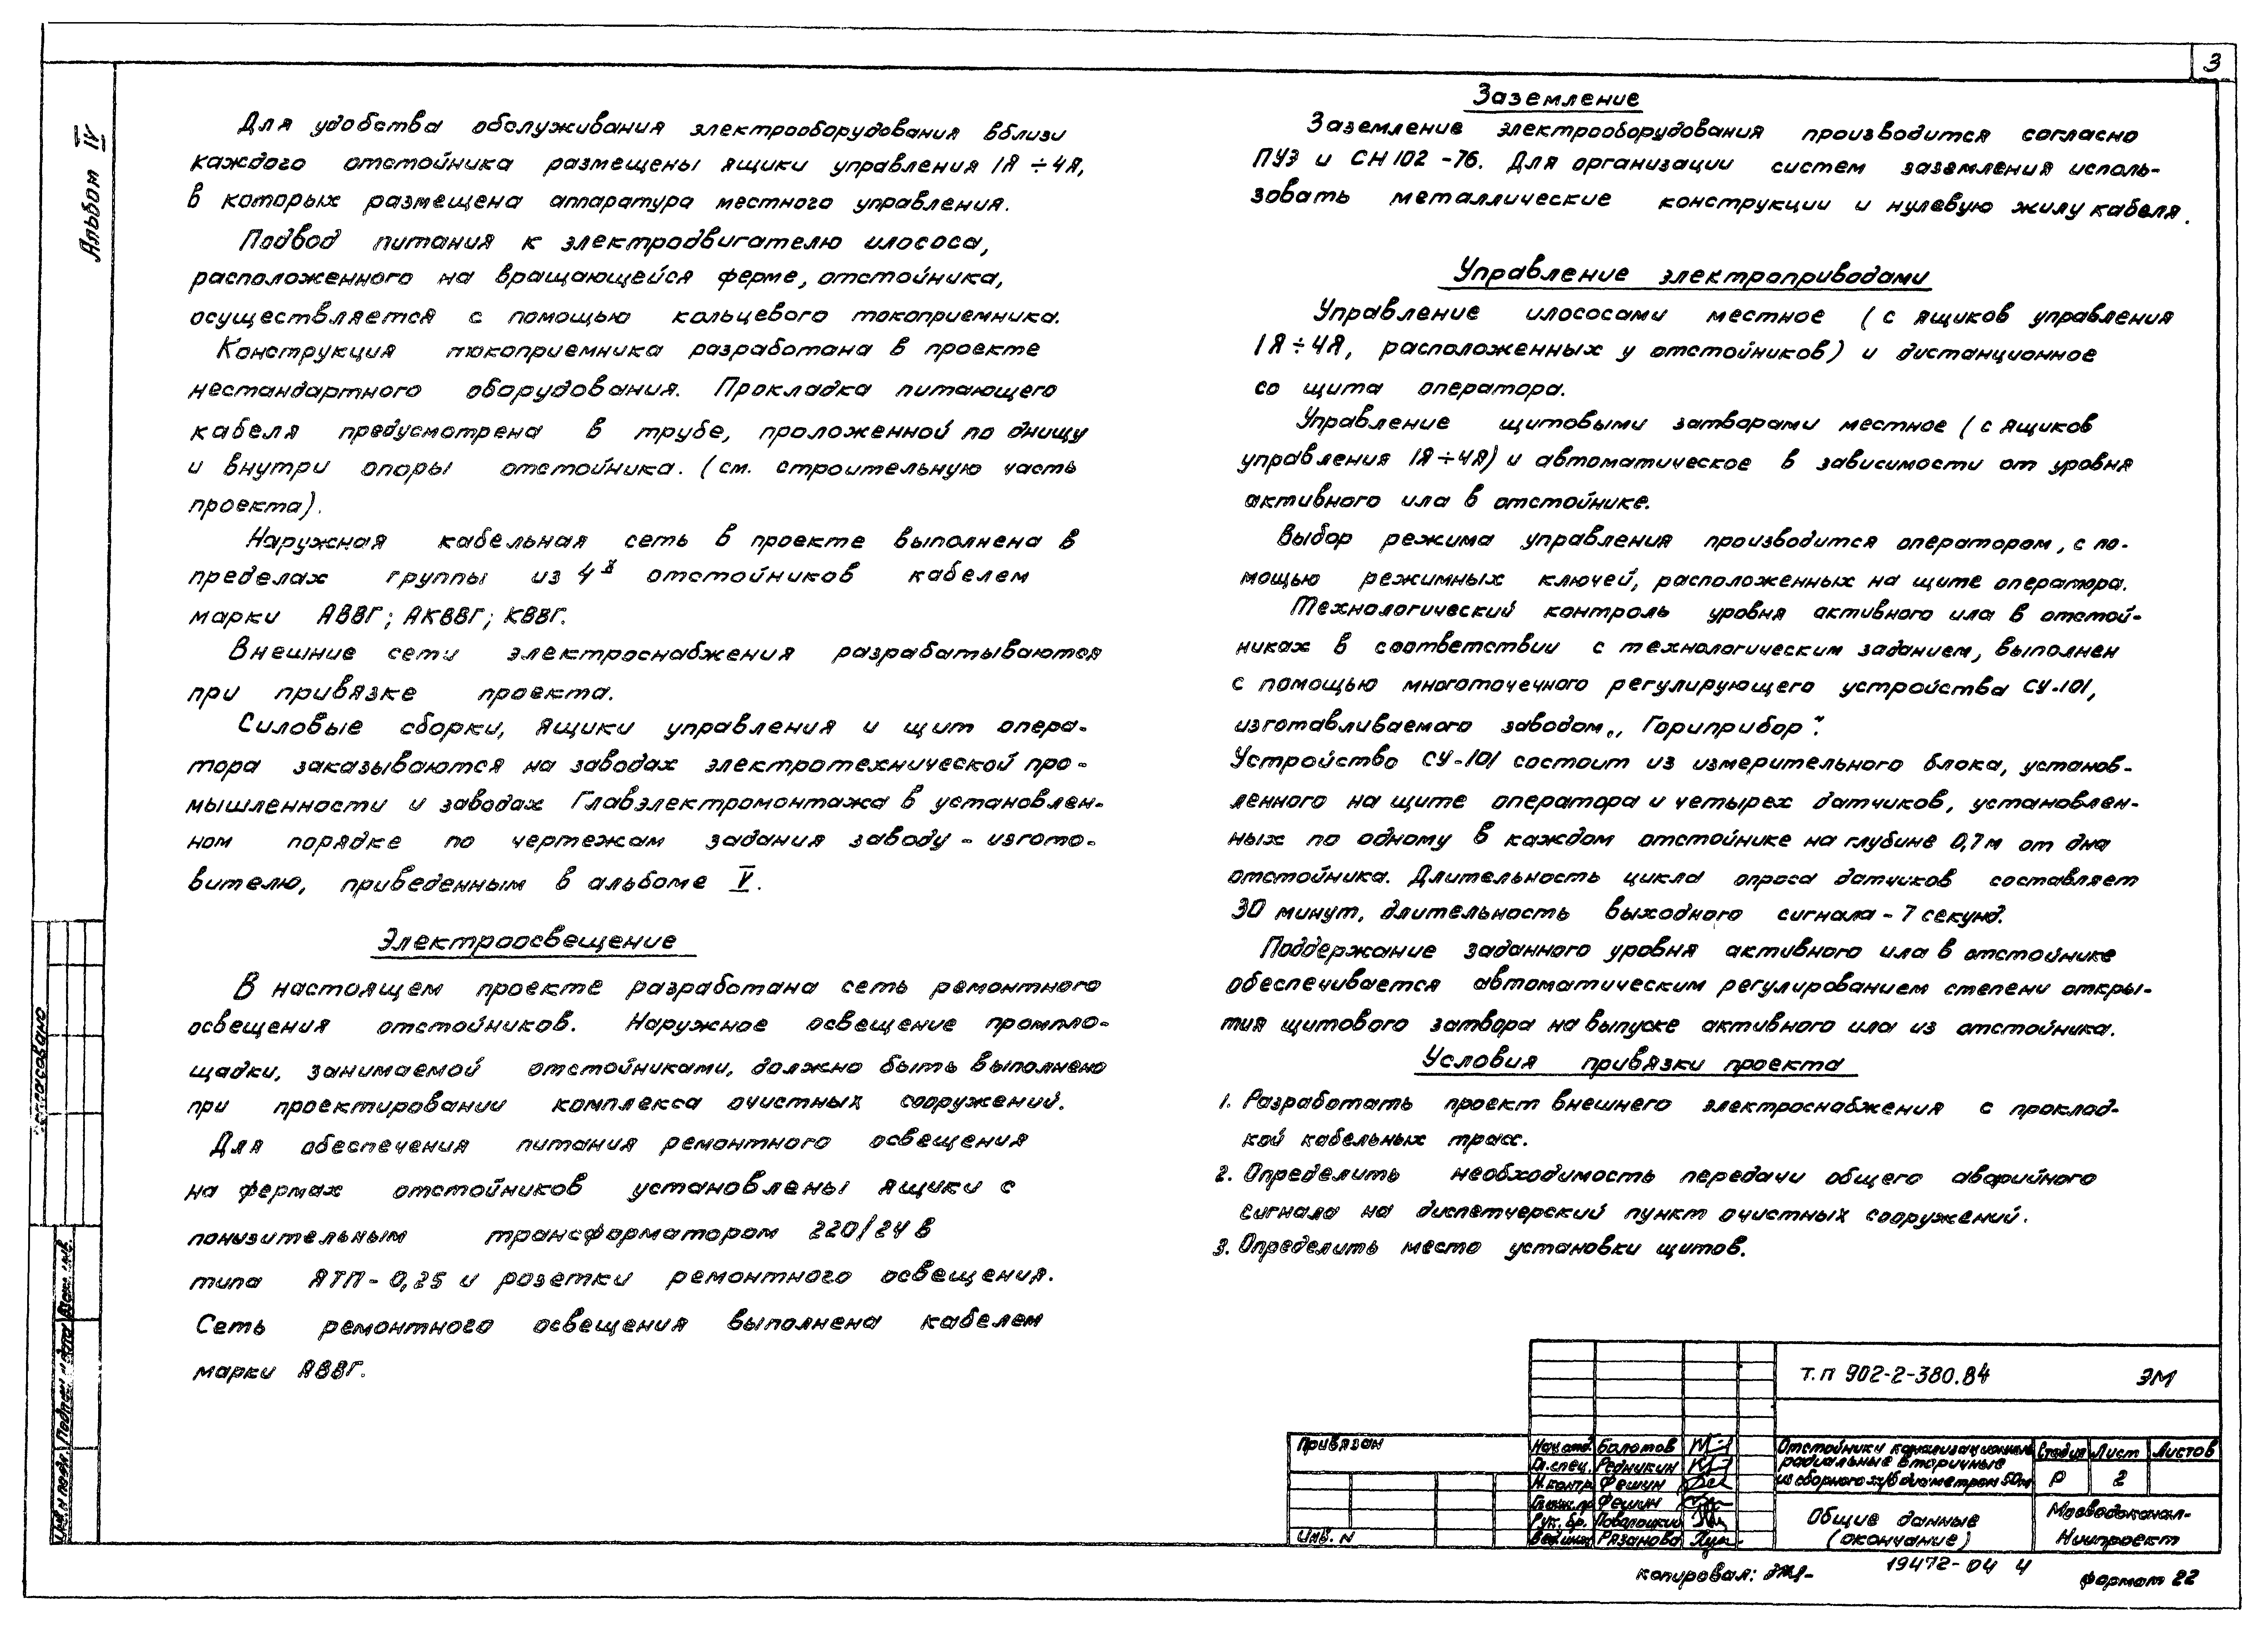 3
Альбом IV
Для удобства обслуживания электрооборудования вблизи
каждого отстойника размещены ящики управления 1Я÷4Я,
в которых размещена аппаратура местного управления.
Подвод питания к электродвигателю илососа,
расположенного на вращающейся ферме, отстойника,
осуществляется с помощью кольцевого токоприемника.
Конструкция токоприемника разработана в проекте
нестандартного оборудования. Прокладка питающего
кабеля предусмотрена в трубе, проложенной по днищу
и внутри опоры отстойника. (см. строительную часть
проекта).
Наружная кабельная сеть в проекте выполнена в
пределах группы из 4х отстойников кабелем
марки АВВГ; АКВВГ; КВВГ.
Внешние сети электроснабжения разрабатываются
при привязке проекта.
Силовые сборки, ящики управления и щит опера-
тора заказываются на заводах электротехнической про-
мышленности и заводах Главэлектромонтажа в установлен-
ном порядке по чертежам задания заводу - изгото-
вителю, приведенным в альбоме V.
Электроосвещение
В настоящем проекте разработана сеть ремонтного
освещения отстойников. Наружное освещение промпло-
щадки, занимаемой отстойниками, должно быть выполнено
при проектировании комплекса очистных сооружений.
Для обеспечения питания ремонтного освещения
на фермах отстойников установлены ящики с
понизительным трансформатором 220/24 В
типа ЯТП-0,25 и розетки ремонтного освещения.
Сеть ремонтного освещения выполнена кабелем
марки АВВГ.
Заземление
Заземление электрооборудования производится согласно
ПУЭ и СН 102-76. Для организации систем заземления исполь-
зовать металлические конструкции и нулевую жилу кабеля.
Управление электроприводами
Управление илососами местное (с ящиков управления
1Я÷4Я, расположенных у отстойников) и дистанционное
со щита оператора.
Управление щитовыми затворами местное (с ящиков
управления 1Я÷4Я) и автоматическое в зависимости от уровня
активного ила в отстойнике.
Выбор режима управления производится оператором, с по-
мощью режимных ключей, расположенных на щите оператора.
Технологический контроль уровня активного ила в отстой-
никах в соответствии с технологическим заданием, выполнен
с помощью многоточечного регулирующего устройства СУ-101,
изготавливаемого заводом „Гориприбор".
Устройство СУ-101 состоит из измерительного блока, установ-
ленного на щите оператора и четырех датчиков, установлен-
ных по одному в каждом отстойнике на глубине 0,7м от дна
отстойника. Длительность цикла опроса датчиков составляет
30 минут, длительность выходного сигнала - 7 секунд.
Поддержание заданного уровня активного ила в отстойнике
обеспечивается автоматическим регулированием степени откры-
тия щитового затвора на выпуске активного ила из отстойника.
Условия привязки проекта
1. Разработать проект внешнего электроснабжения с проклад-
кой кабельных трасс.
2. Определить необходимость передачи общего аварийного
сигнала на диспетчерский пункт очистных сооружений.
3. Определить место установки щитов.
Согласовано
Инв. N подл. Подпись и дата Взам. инв.
Т.П 902-2-380.84 ЭМ
Привязан
Инв. N
Нач. отд. Болотов
Гл. спец. Редникин
Н. контр. Фешин
Гл. инж. пр. Фешин
Рук. бр. Поволоцкий
Вед. инж. Рязанова
Отстойники канализационные
радиальные вторичные
из сборного ж/б диаметром 50м
Стадия Лист Листов
Р 2
Общие данные
(окончание)
Мосводоканал-
Ниипроект
Копировал:
19472-04 4
формат 22